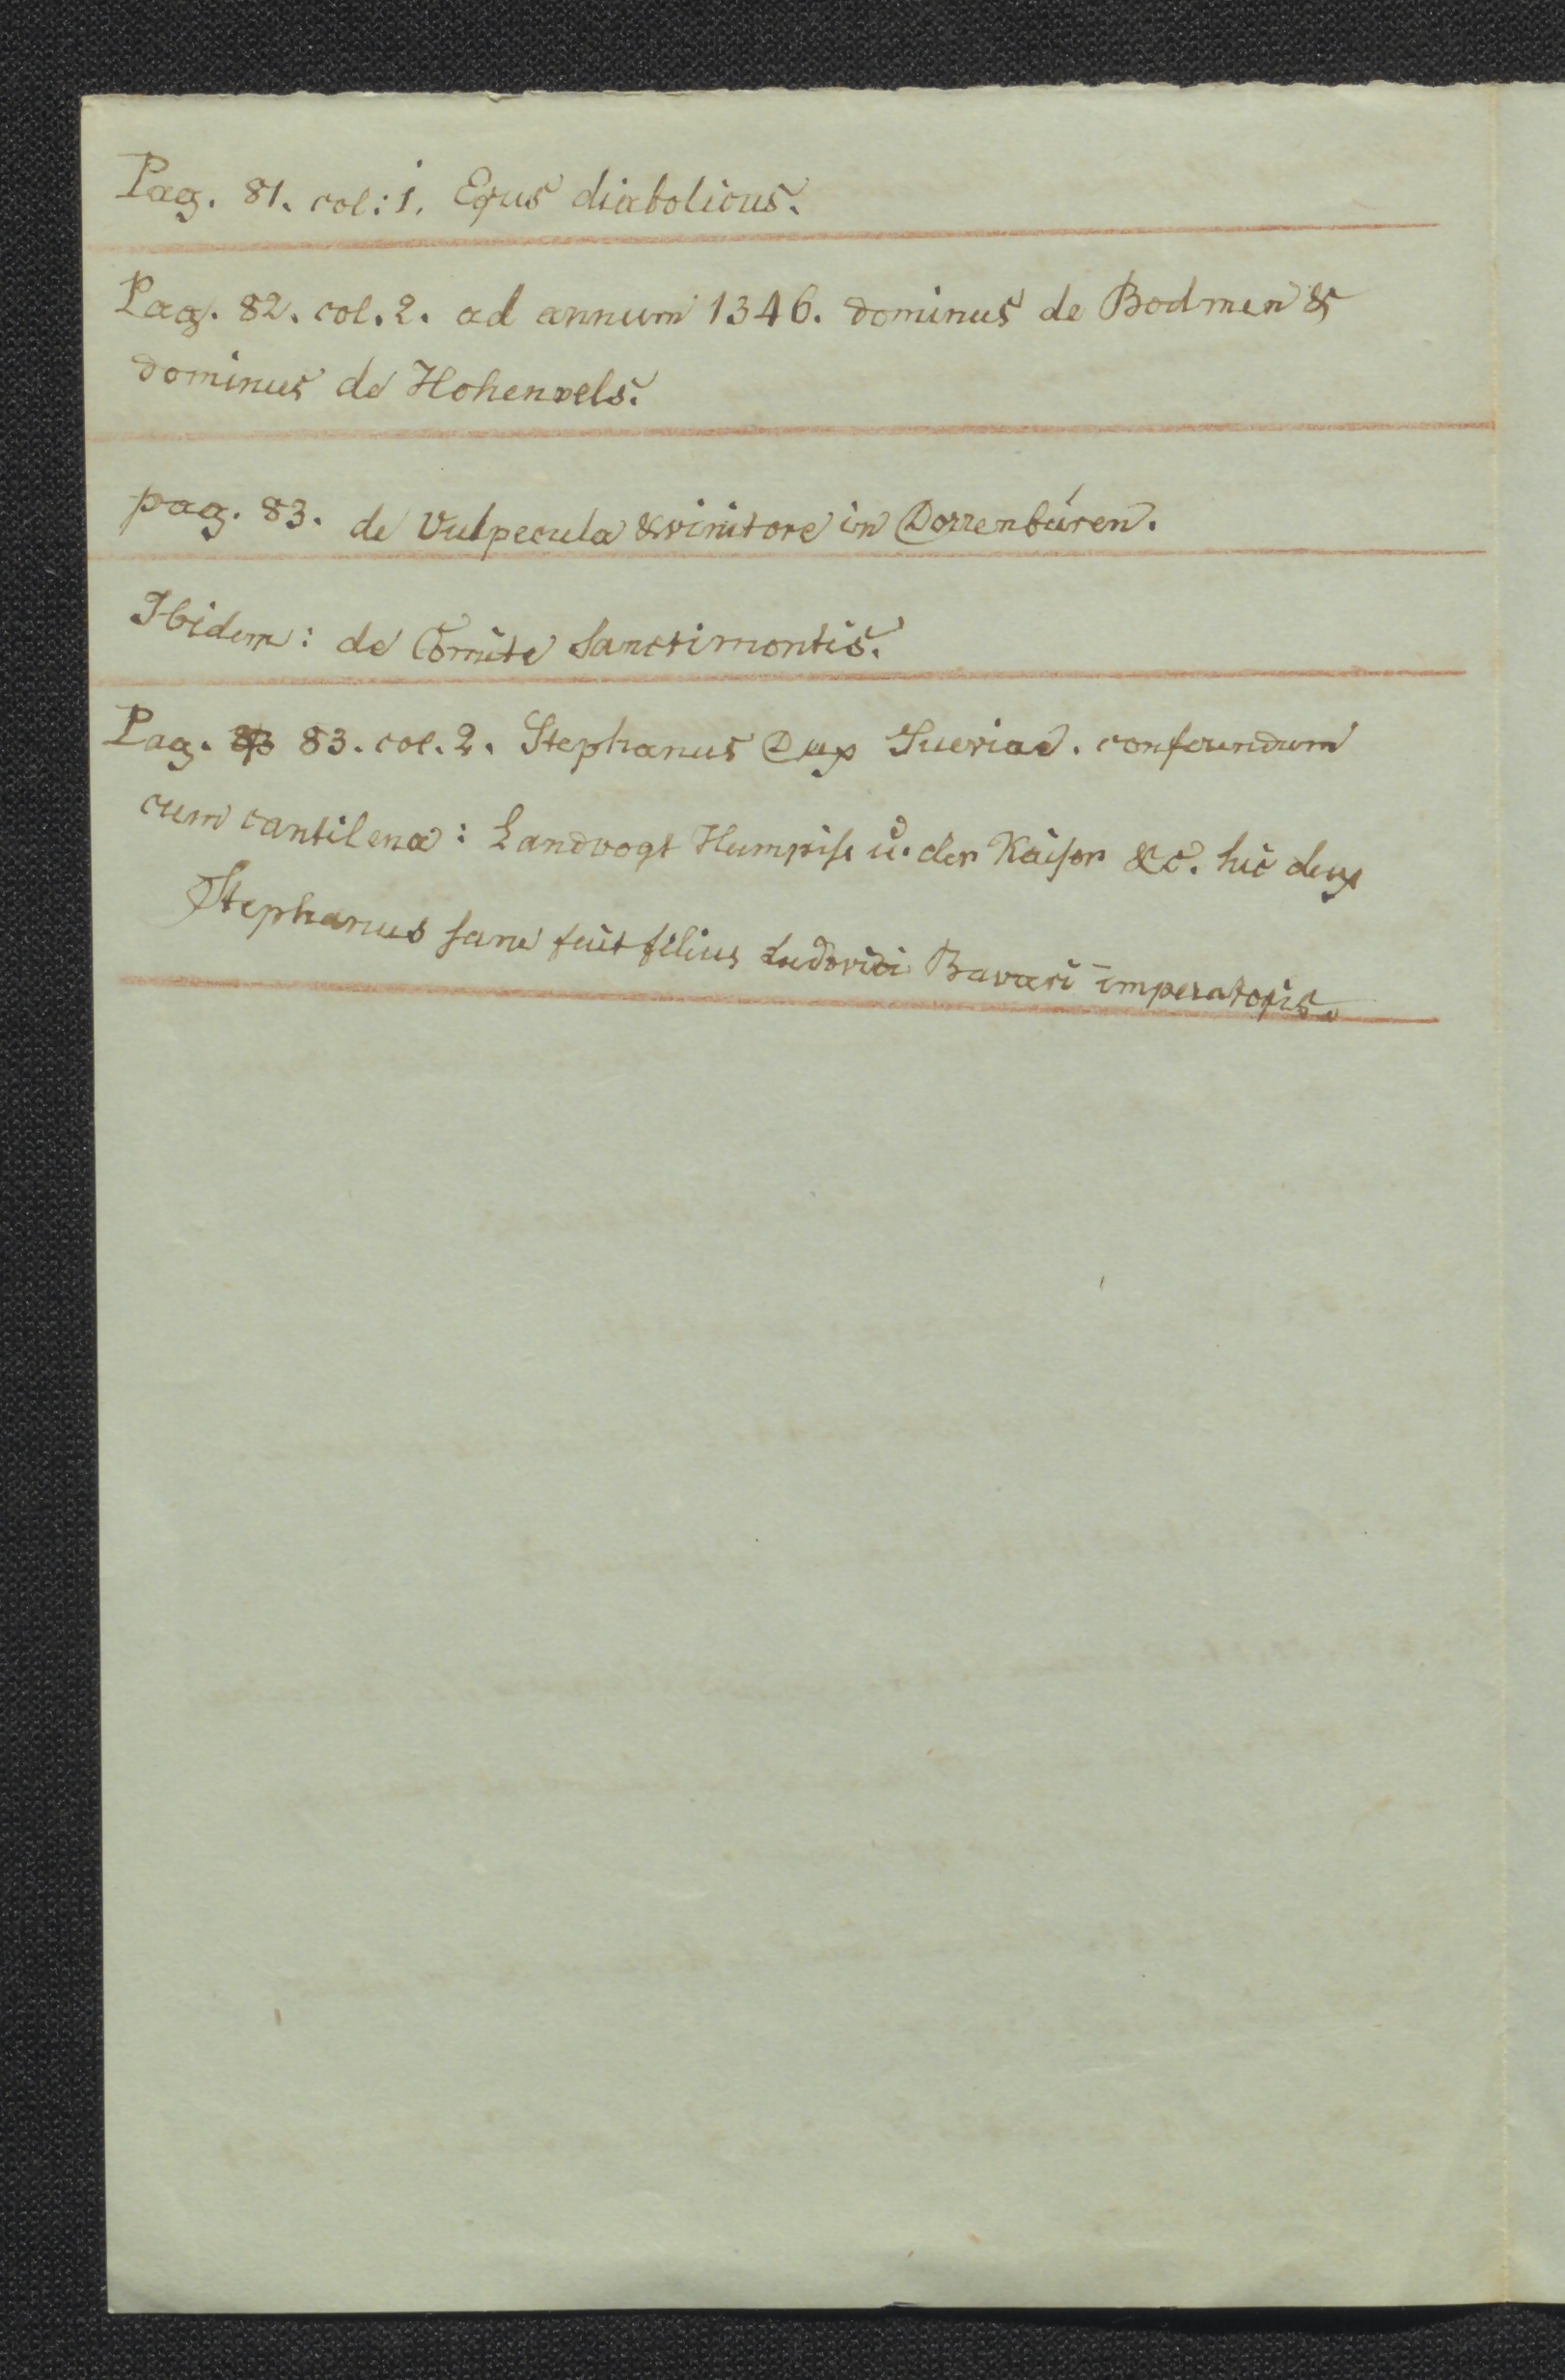 Pag. 81. col: 1. Equs diabolicus.
Pag. 82. col. 2. ad annum 1346. dominus de Bodmen &
dominus de Hohenvels.
pag. 83. de vulpecula & vinitore in Dorrenbúren.
Ibidem: de Comite Sanctimontis.
Pag. 83. col. 2. Stephanus Dux Sueviae. conferundum
cum cantilena: Landvogt Humpiss u. der Kaiser &c. hic dux
Stephanus sane fuit filius Ludovici Bavari imperatoris.